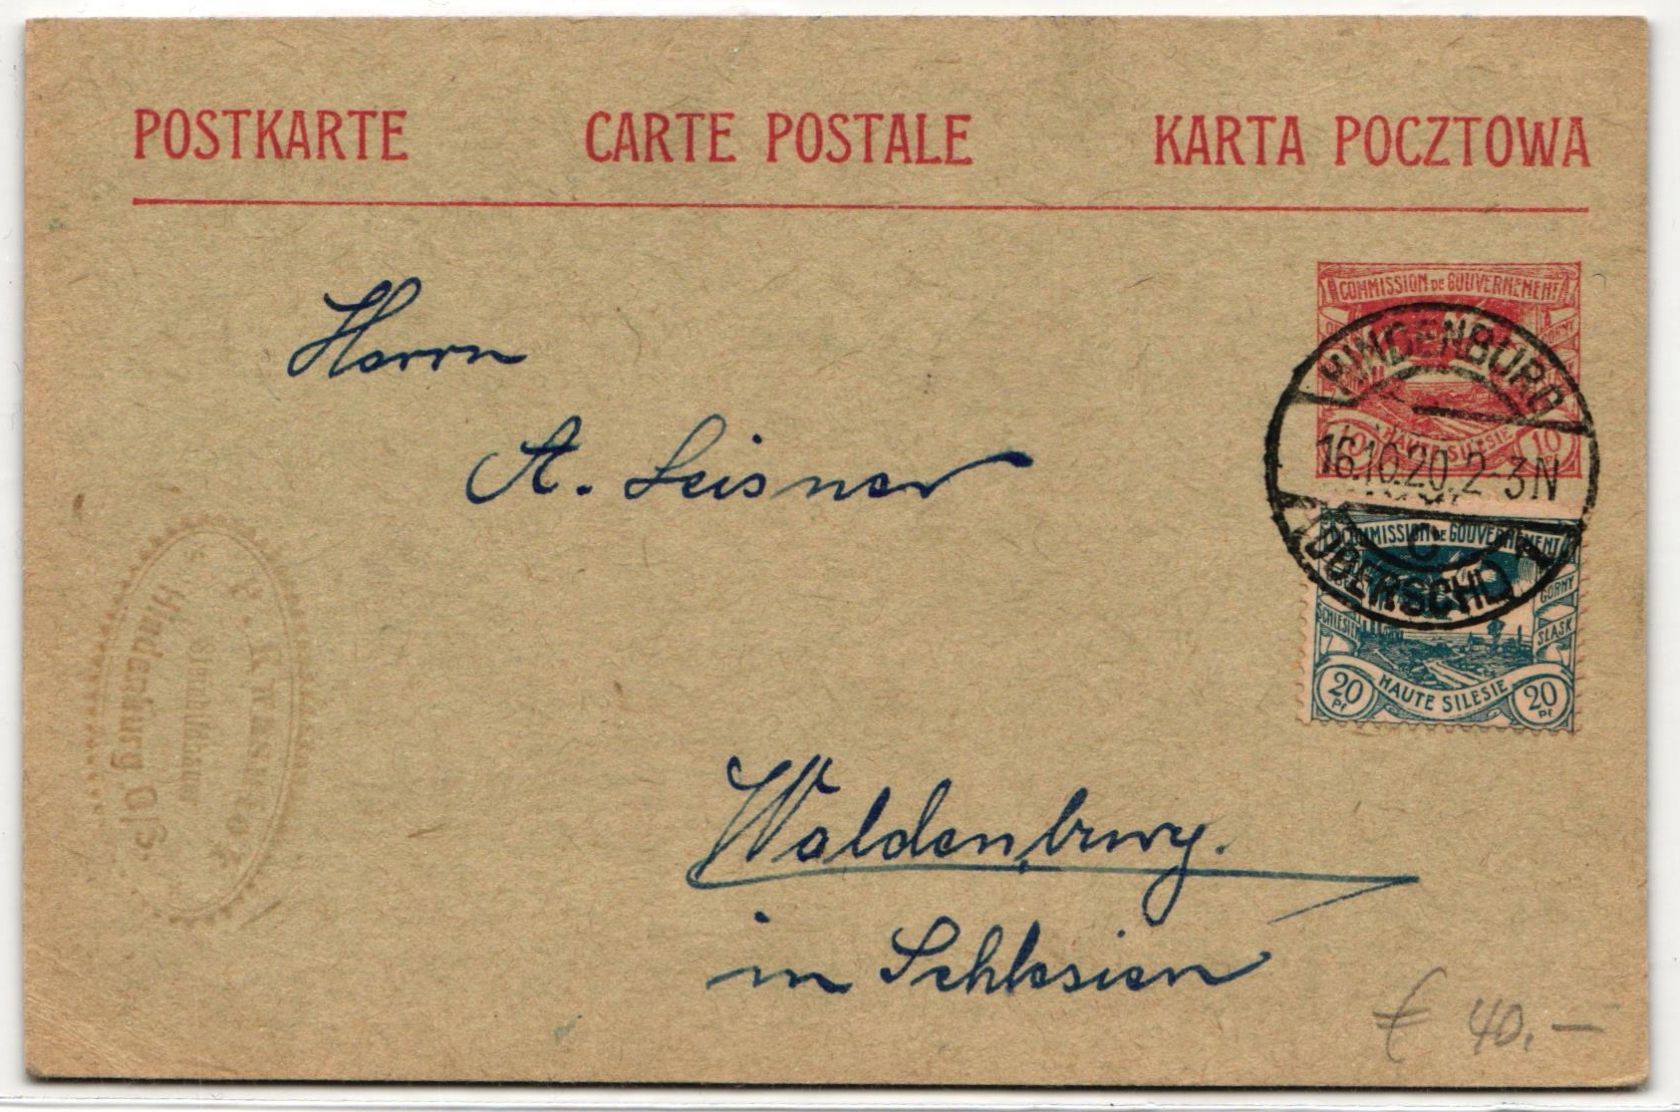 POSTKARTE CARTE POSTALE KARTA POCZTOWA
COMMISSION DE GOUVERNEMENT
GORNY
10 HAUTE SILESIE 10
HINDENBURG
16.10.20.2-3N
C
(OBERSCHL) 1
COMMISSION DE GOUVERNEMENT
SCHLESIEN GORNY
SLASK
20 Pf HAUTE SILESIE 20 Pf
Herrn
A. Leisner
Waldenburg.
in Schlesien
Hindenburg O/S.
€ 40,-